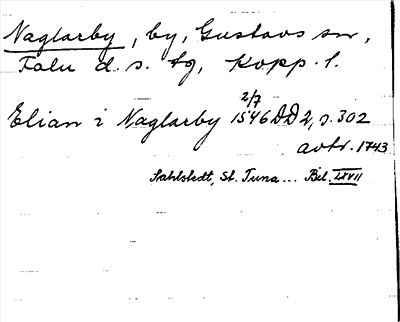 Naglarby, by, Gustavs sn,
Falu d. s. tg, Kopp. l.
Elian i Naglarby 2/7 1546 DD 2, s. 302
avtr. 1743
Sahlstedt, St. Tuna... Bil. LXVII